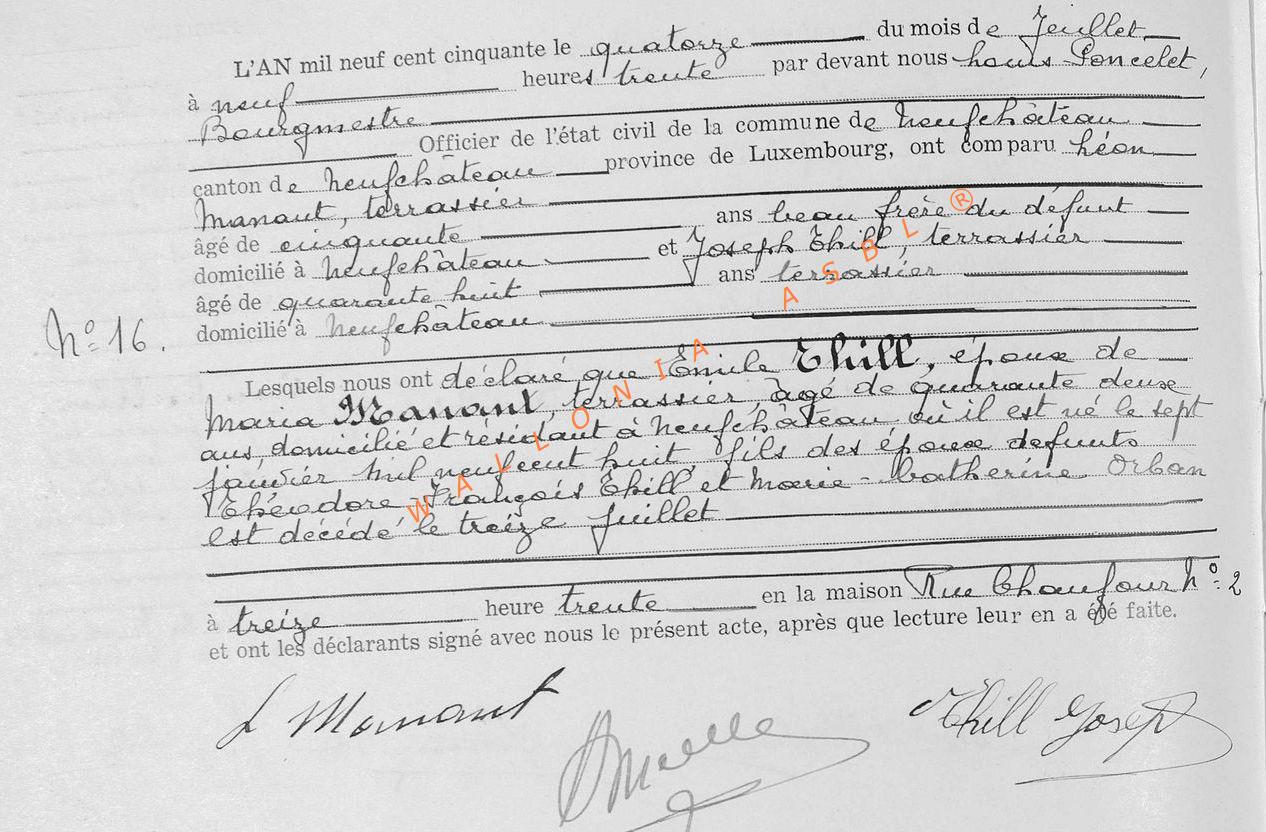 L'AN mil neuf cent cinquante le quatorze du mois de Juillet
à neuf heures trente par devant nous Louis Poncelet,
Bourgmestre
Officier de l'état civil de la commune de Neufchâteau
canton de Neufchâteau province de Luxembourg, ont comparu Léon
Manant, terrassier
âgé de cinquante ans beau frère du défunt
domicilié à Neufchâteau et Joseph Thill, terrassier
âgé de quarante huit ans terrassier
domicilié à Neufchâteau
No 16.
Lesquels nous ont déclaré que Emile Thill, époux de
Maria Manant, terrassier, âgé de quarante deux
ans, domicilié et résidant à Neufchâteau où il est né le sept
janvier mil neuf cent huit, fils des époux defunts
Théodore François Thill et Marie-Catherine Orban
est décédé le treize juillet
à treize heure trente en la maison Rue Chaufour No 2
et ont les déclarants signé avec nous le présent acte, après que lecture leur en a été faite.
L Manant
Thill Joseph
WALLONIA ASBL ®